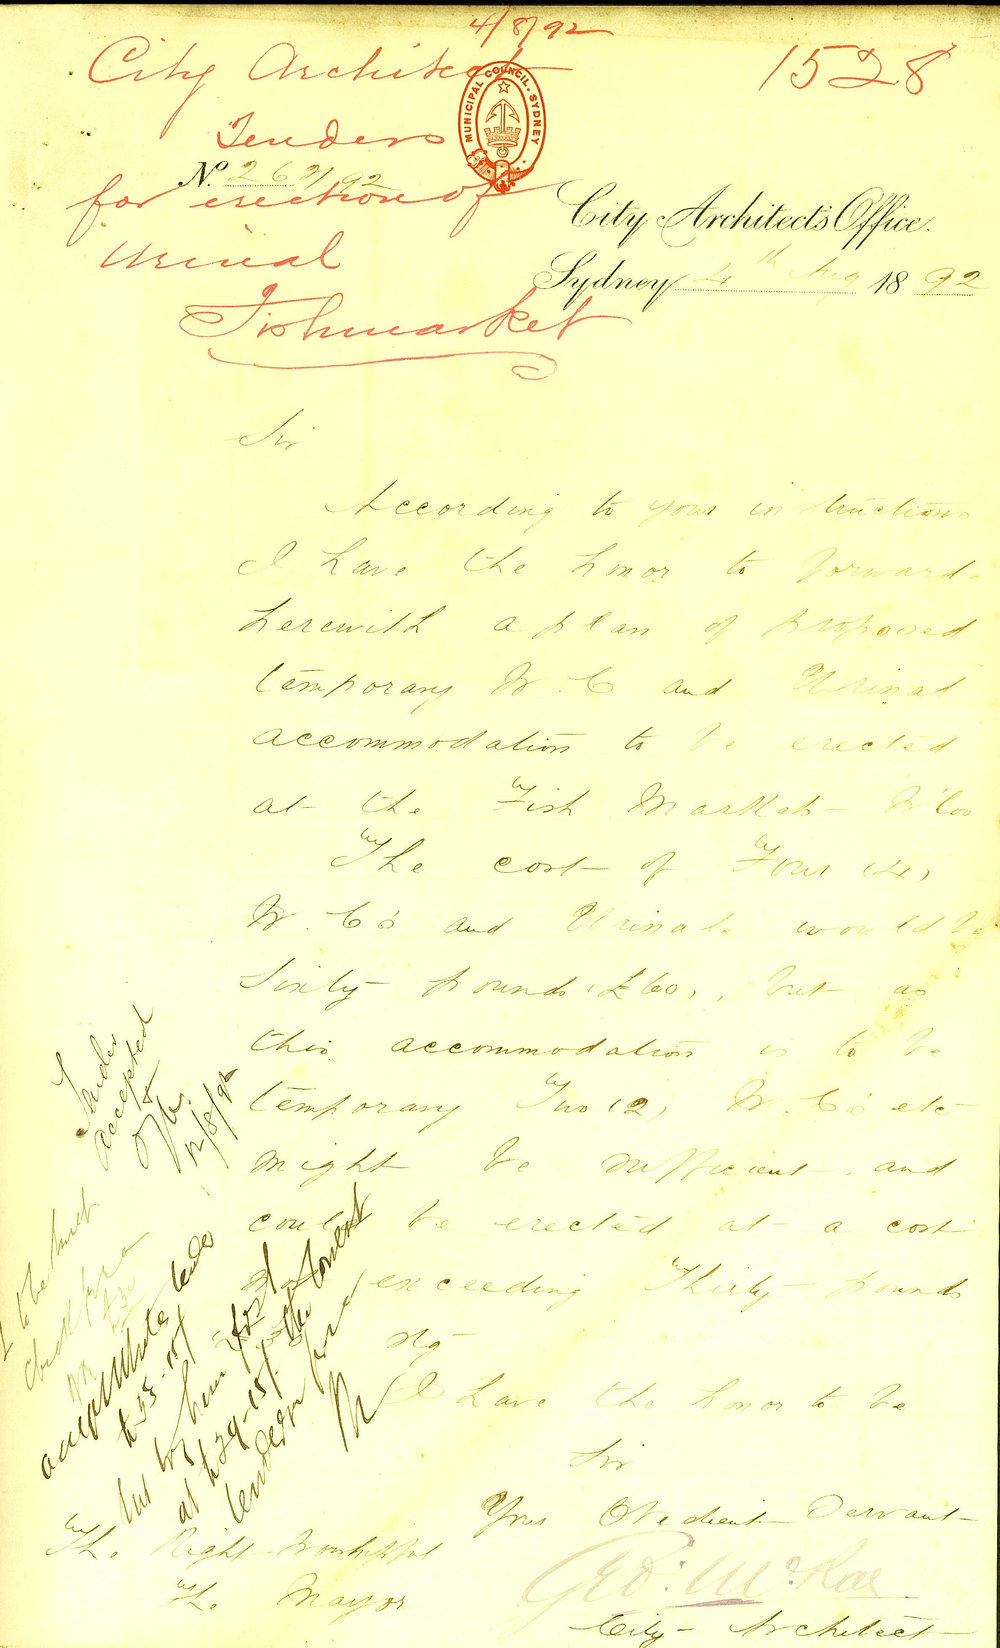 4/8/92
City Architect
1528
MUNICIPAL COUNCIL. SYDNEY
Tenders
No. 262/92
for erection of
Urinal
Fishmarket
City Architect's Office.
Sydney 4th Aug 1892
Sir
According to your instructions
I have the honor to forward
herewith a plan of proposed
temporary W.C and Urinal
accommodation to be erected
at the Fish Market W'loo
The cost of Four (4)
W.C's and Urinals would be
Sixty pounds (£60), but as
this accommodation is to be
temporary Two (2) W.C's etc
might be sufficient and
could be erected at a cost
exceeding Thirty pounds
stg
I have the honor to be
Sir
Your Obedient Servant
Geo. McRae
City Architect
The Right Worshipful
The Mayor
Tender
accepted
12/8/92
to be
£30
tender
but
at the lowest
tender